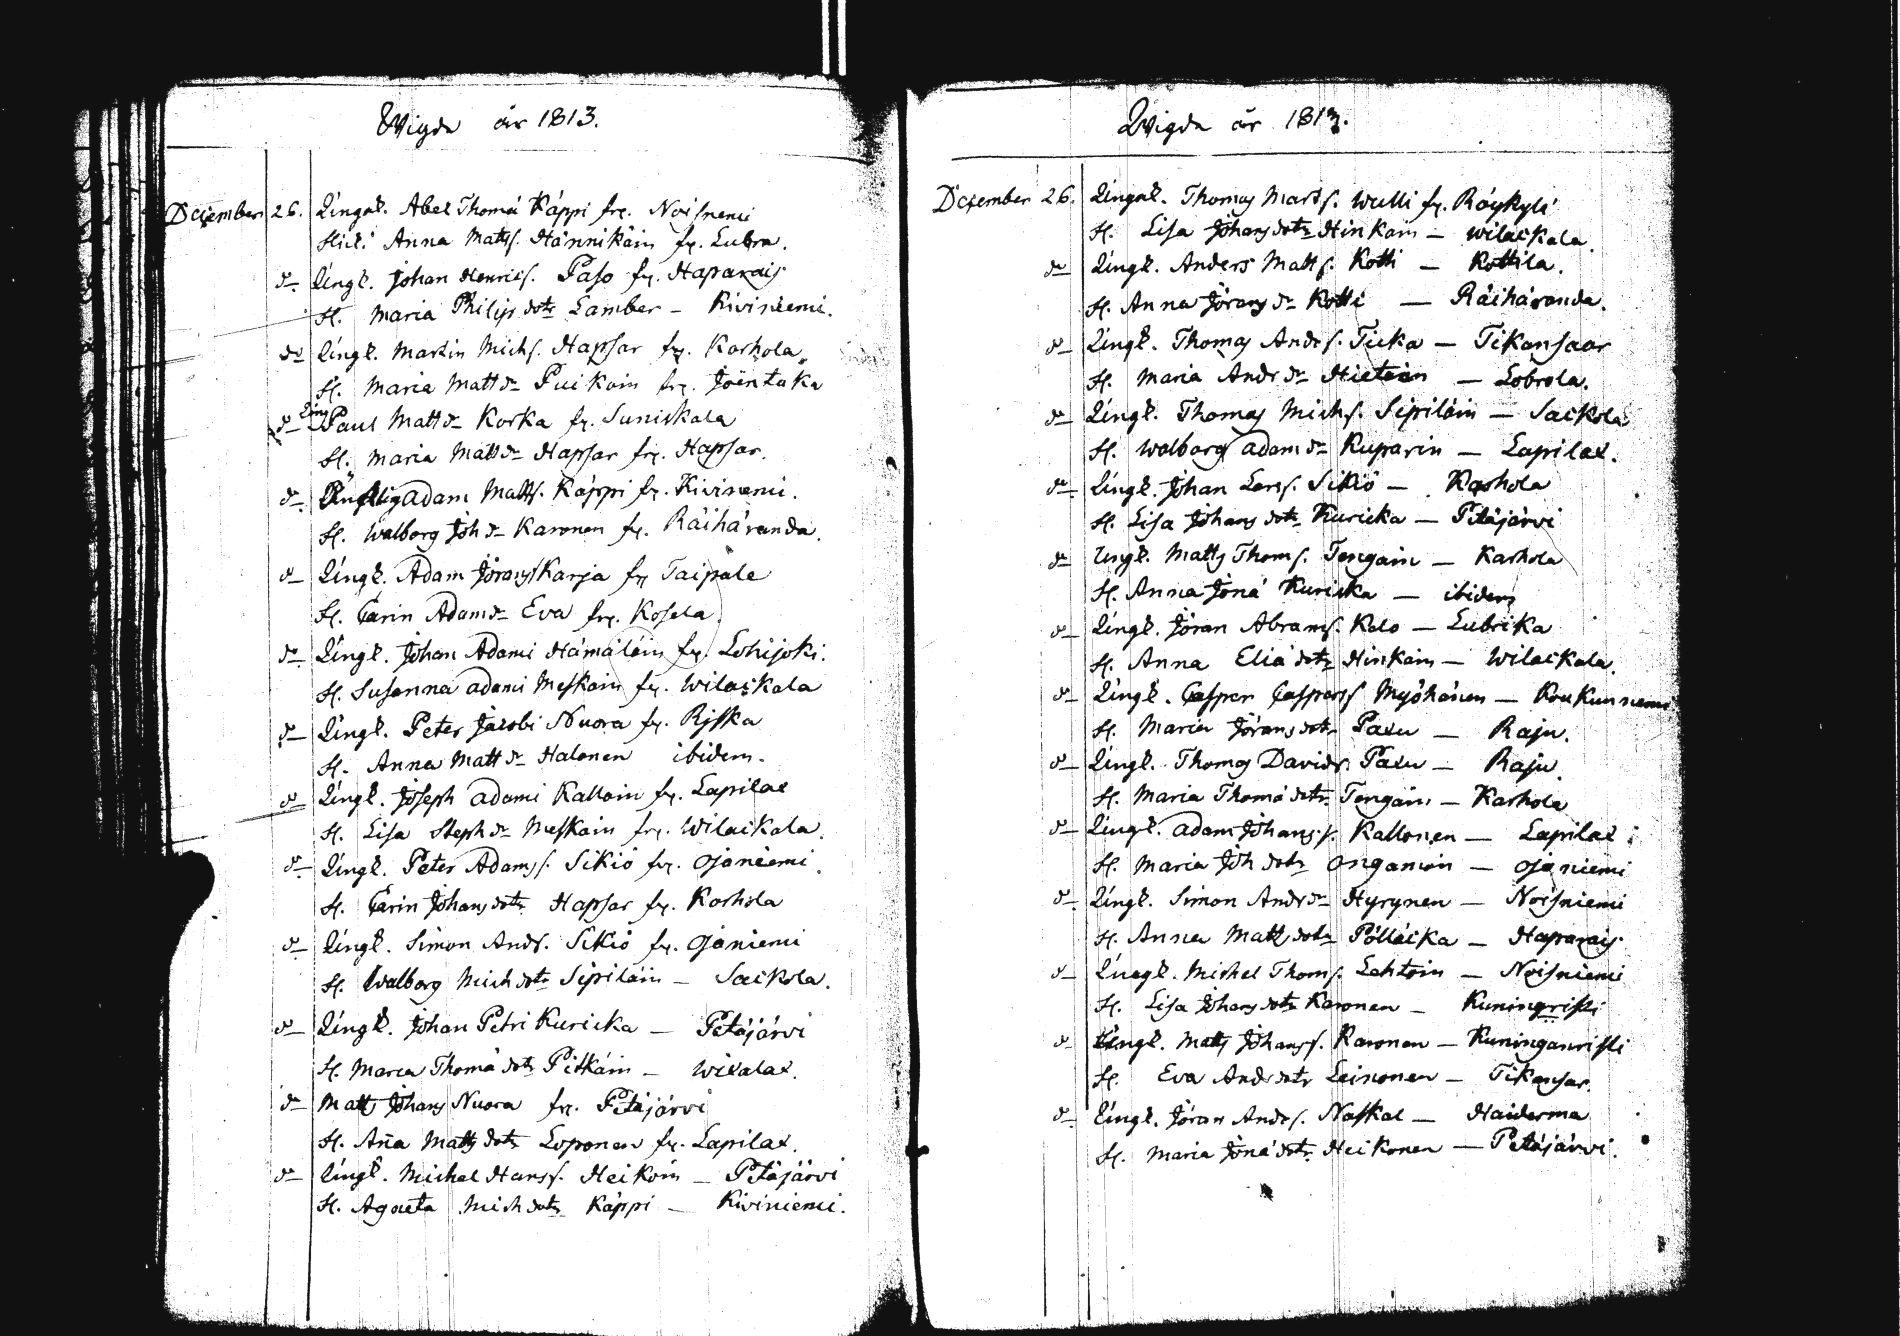 Wigda år 1813.
December 26. Üngak. Abel Thomæ Käppi frn. Noisnemi
Hust. Anna Matts. Hännikäin fr. Lubra.
do Üngk. Johan Henrics. Paso fr. Haparais
H. Maria Philips dotr Lamber – Kiviniemi.
do Üngk. Martin Michs. Hapsar fr. Karhola
H. Maria Matt dr Puikoin fr. Joentaka
do Üng Paul Matt dr Korka fr. Suniskala
H. Maria Matt dr Hapsar fr. Hapsar.
do Adam Matts. Käppi fr. Kivinemi.
H. Walborg Joh dr Karonen fr. Räihäranda.
do Üngk. Adam Jörans Karja fr Taipale
H. Carin Adam dr Eva fr. Kosela
do Üngk. Johan Adami Hämäläin fr. Lohijoki.
H. Susanna Adami Meskain fr. Wilackala
do Üngk. Peter Jacobi Nuora fr. Rjska
H. Anna Matt dr Halonen ibidem.
do Üngk. Joseph Adami Kalloin fr. Lapilax
H. Lisa Steph dr Meskain fr. Wilackala.
do Üngk. Peter Adams s. Sikiö fr. Ojaniemi.
H. Carin Johans dotr Hapsar fr. Karhola
do Üngk. Simon Ands. Sikiö fr. Ojaniemi
H. Walborg Mich dotr Sipiläin – Sackola.
do Üngk. Johan Petri Kuricka – Petäjärvi
H. Maria Thomæ dotr Pitkäin – Wixalax.
do Matts Johans Nuora fr. Petäjärvi
H. Aña Matts dotr Loponen fr. Lapilax.
do Üngk. Michel Hanss. Heikoin – Petäjärvi
H. Agneta Mich dotr Käppi – Kiviniemi.
Wigda år 1813.
December 26. Üngak. Thomas Marts. Wulli fr. Röykyli
H. Lisa Johans dotr Hinkain – Wilackala.
do Üngk. Anders Matts. Kotti – Kottila.
H. Anna Jörans dr Kotti – Räihäranda.
do Üngk. Thomas Ands. Ticka – Tikansaar
H. Maria Andr dr Hietain – Lobrola.
do Üngk. Thomas Michs. Sipiläin – Sackola
H. Walborg Adam dr Kuparin – Lapilax.
do Üngk. Johan Larss. Sikiö – Karhola
H. Lisa Johans dotr Kuricka – Petäjärvi
do Üngk. Matts Thoms. Tengain – Karhola
H. Anna Jonæ Kuricka – ibidem
do Üngk. Jöran Abrams. Kolo – Lubrika
H. Anna Eliæ dotr Hinkain – Wilackala.
do Üngk. Casper Caspers s Myöhänen – Roukunniemi
H. Maria Jörans dotr Paxu – Raju.
do Üngk. Thomas Davids. Paxu – Raju.
H. Maria Thomæ dotr Tengäin – Karhola
do Üngk. Adam Johans s. Kallonen – Lapilax
H. Maria Joh dotr Ongamoin – Ojaniemi
do Üngk. Simon Andr dr Hyrynen – Noisniemi
H. Anna Matts dotr Pölläcka – Haparais
do Üngk. Michel Thoms. Lehtoin – Noisniemi
H. Lisa Johans dotr Karonen – Kuningristi
do Üngk. Matts Johans s. Karonen – Kuninganristi
H. Eva And dotr Leinonen – Tikansar.
do Üngk. Jöran Ands. Naskal – Haiderma
H. Maria Jonæ dotr Heikonen – Petäjärvi.